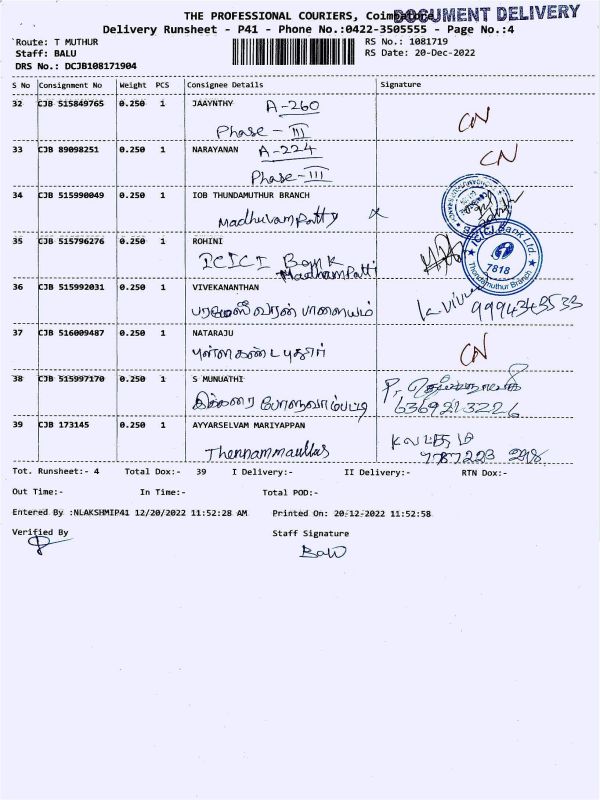 THE PROFESSIONAL COURIERS, Coimbatore
DOCUMENT DELIVERY
Delivery Runsheet - P41 - Phone No.:0422-3505555 - Page No.:4
Route: T MUTHUR
RS No.: 1081719
Staff: BALU
RS Date: 20-Dec-2022
DRS No.: DCJB108171904
S No Consignment No Weight PCS Consignee Details Signature
32 CJB 515849765 0.250 1 JAAYNTHY A-260
Phase - III
CN
33 CJB 89098251 0.250 1 NARAYANAN A-224 CN
Phase - III
34 CJB 515990049 0.250 1 IOB THUNDAMUTHUR BRANCH
Madhuvampatty
35 CJB 515796276 0.250 1 ROHINI
ICICI Bank
Madhampatti
ICICI Bank Ltd.
7818
Thondamuthur Branch
36 CJB 515992031 0.250 1 VIVEKANANTHAN
பரமேஸ்வரன் பாளையம்
9994343533
37 CJB 516009487 0.250 1 NATARAJU
CN
38 CJB 515997170 0.250 1 S MUNUATHI
இக்கரை போளுவாம்பட்டி
6369213226
39 CJB 173145 0.250 1 AYYARSELVAM MARIYAPPAN
Tot. Runsheet:- 4 Total Dox:- 39 I Delivery:- II Delivery:- RTN Dox:-
Out Time:- In Time:- Total POD:-
Entered By :NLAKSHMIP41 12/20/2022 11:52:28 AM Printed On: 20-12-2022 11:52:58
Verified By Staff Signature
Balu